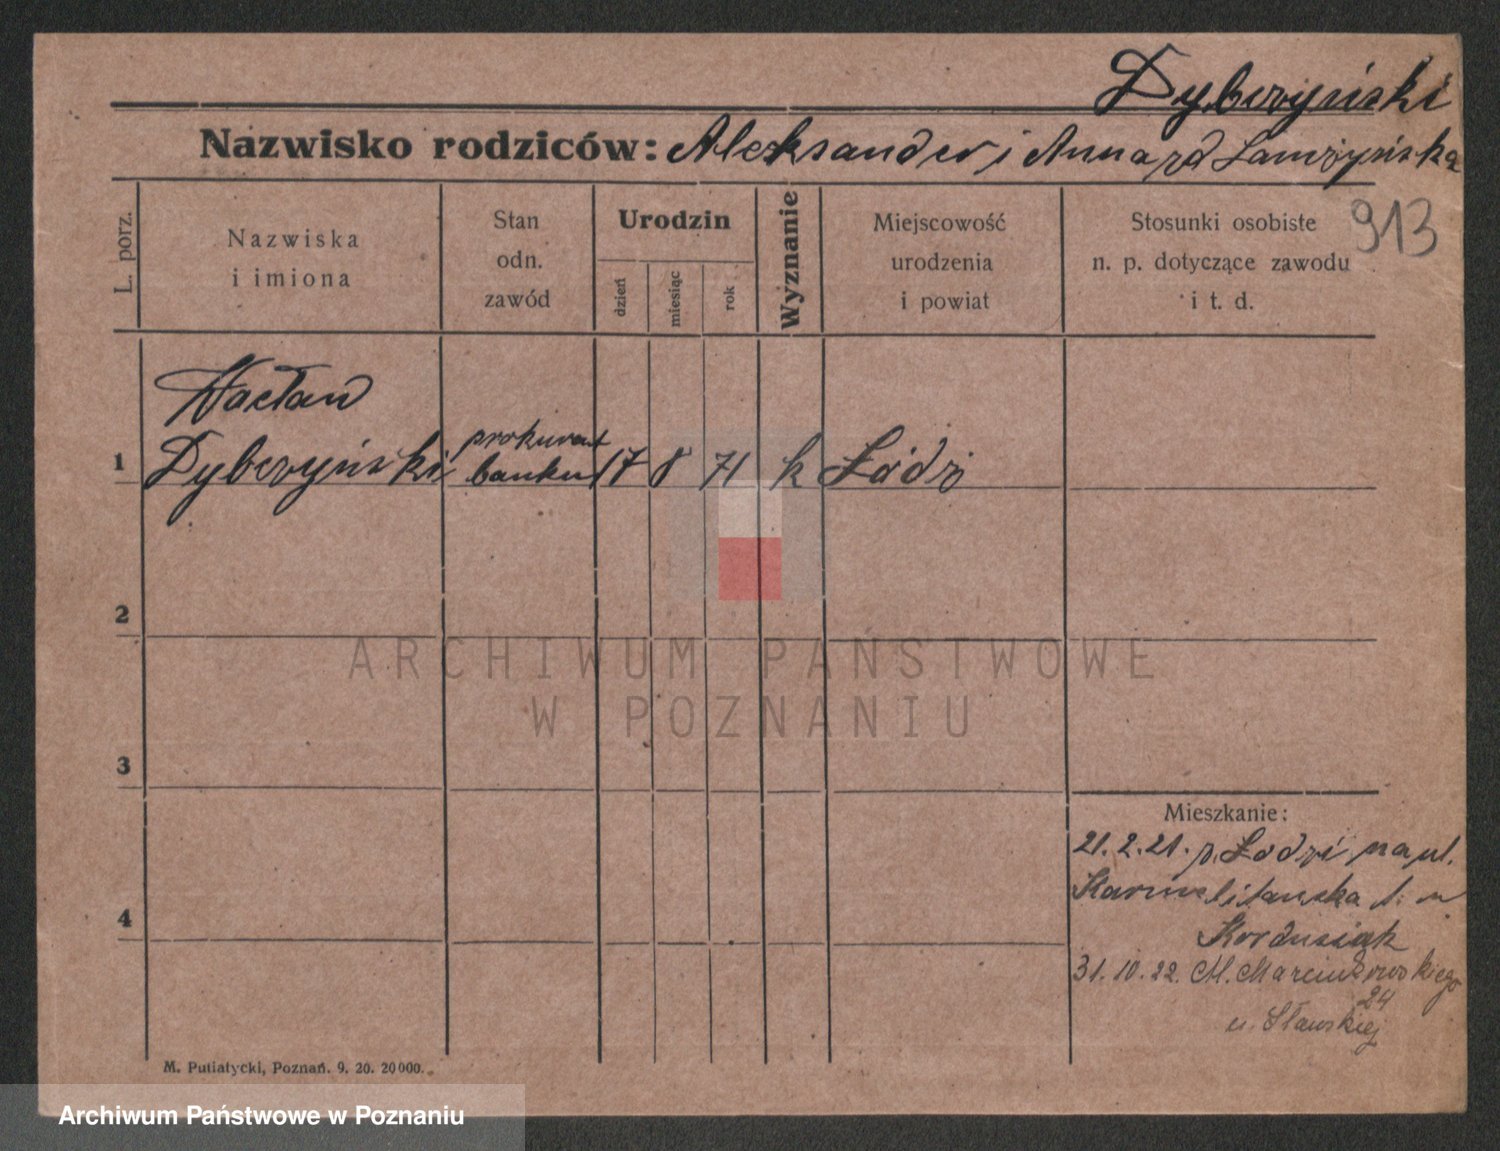 Dybczyński
Nazwisko rodziców: Aleksander i Anna zd
913
L. porz.
Nazwiska i imiona
Stan odn. zawód
Urodzin
dzień
miesiąc
rok
Wyznanie
Miejscowość urodzenia i powiat
Stosunki osobiste n. p. dotyczące zawodu i t. d.
Wacław
1 Dybczyński prokurent banku 17 8 71 k Łódź
2
ARCHIWUM PAŃSTWOWE
W POZNANIU
3
Mieszkanie:
21.2.21. z Łodzi na ul.
Karmelitańska 1.
4
Kordusiak
31.10.22. M. Marcinkowskiego
24
u. Sławskiej
M. Putiatycki, Poznań. 9. 20. 20000.
Archiwum Państwowe w Poznaniu